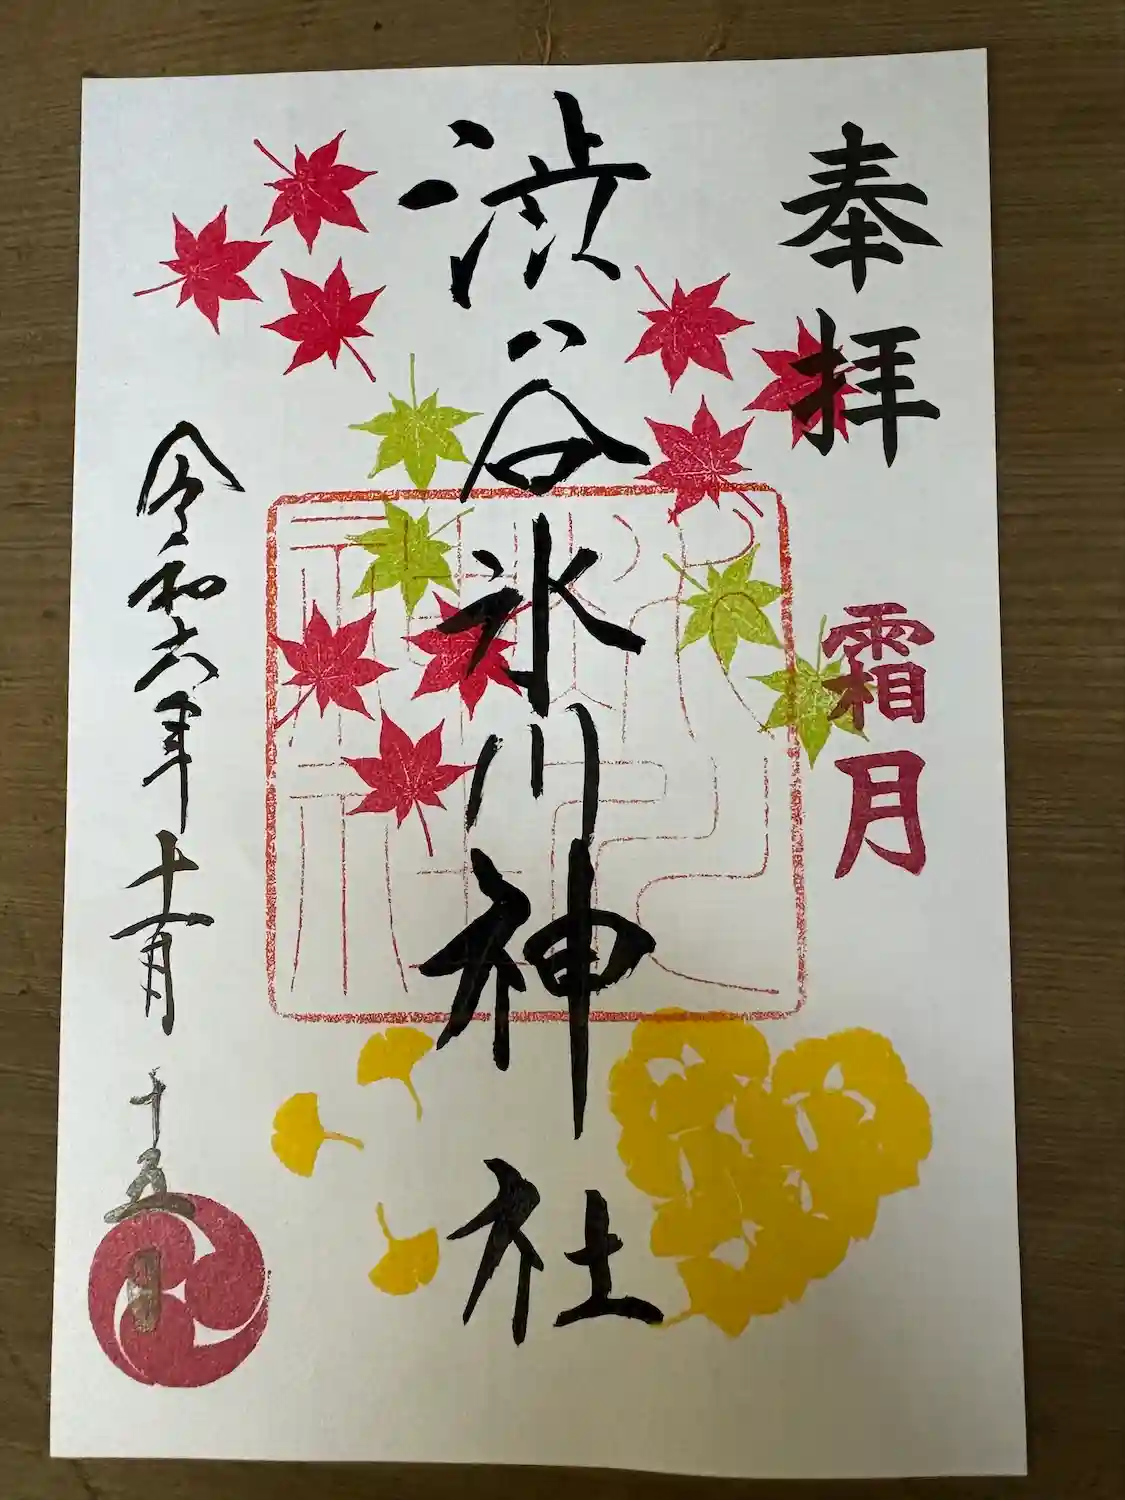 奉拝
霜月
渋谷氷川神社
令和六年十一月十五日